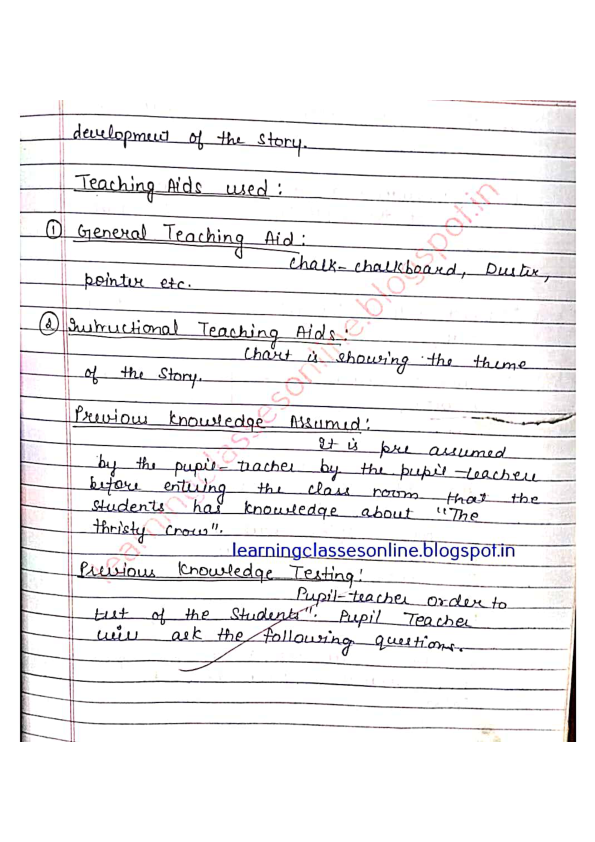 development of the story.
Teaching Aids used :
① General Teaching Aid :
Chalk-chalkboard, Duster,
pointer etc.
② Instructional Teaching Aids :
Chart is showing the theme
of the Story.
Previous knowledge Assumed :
It is pre assumed
by the pupil-teacher by the pupil-teacher
before entering the class room that the
students has knowledge about "The
thristy Crow".
learningclassesonline.blogspot.in
Previous Knowledge Testing :
Pupil-teacher order to
test of the students". Pupil Teacher
will ask the following questions.
learningclassesonline.blogspot.in